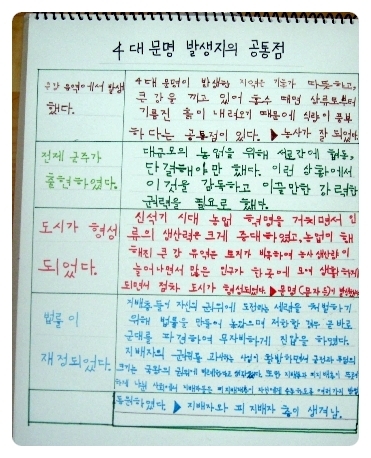 4대 문명 발생지의 공통점
큰 강 유역에서 발생
했다.
4대 문명이 발생한 지역은 기후가 따뜻하고,
큰 강을 끼고 있어 홍수 때면 상류로부터
기름진 흙이 내려오기 때문에 식량이 풍부
하다는 공통점이 있다. ▶농사가 잘 되었다.
전제 군주가
출현하였다.
대규모의 농업을 위해 서로간에 협동,
단결해야만 했다. 이런 상황에서
이것을 감독하고 이끌만한 강력한
권력을 필요로 했다.
도시가 형성
되었다.
신석기 시대 농업 혁명을 거치면서 인
류의 생산력은 크게 증대하였고, 농업이 행
해진 큰 강 유역은 토지가 비옥하여 농사생산량이
늘어나면서 많은 인구가 한곳에 모여 생활하게
되면서 점차 도시가 형성되었다. ▶문명(문자 등)이 발생
법률이
재정되었다.
지배층들이 자신의 권위에 도전하는 세력을 처벌하기
위해 법률을 만들어 놓았으며 저항할 경우 곧바로
군대를 파견하여 무자비하게 진압을 하였다.
지배자의 권위를 과시하는 사업이 활발하면서 궁전과 무덤의
크기는 국왕의 권위에 비례한다고 생각했다. 또한 지배자와 피지배층이
나뉜 사회에서 지배자들은 피지배층이 자신에게 순종하도록 여러가지 방법
동원하였다. ▶지배자와 피지배자 층이 생겨남.